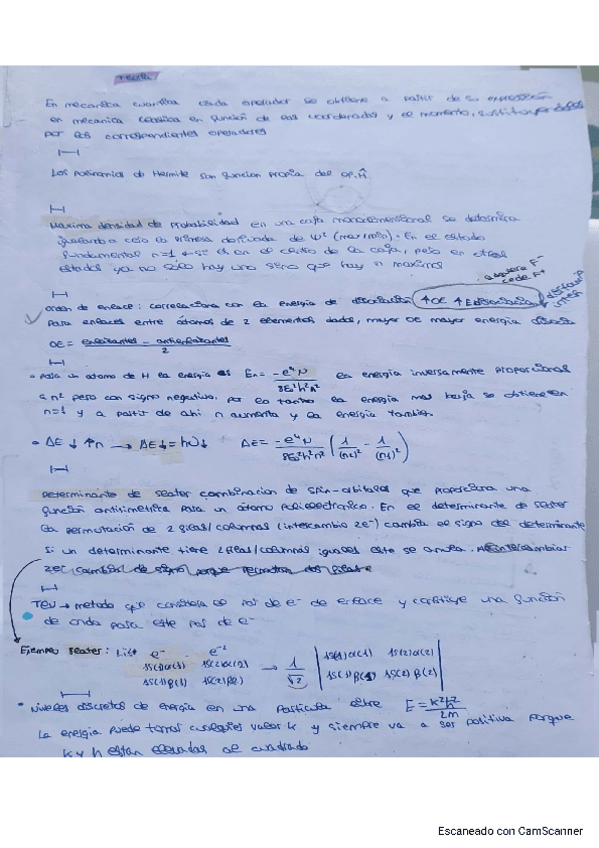 Teoría
En mecánica cuántica cada operador se obtiene a partir de su expresión
en mecánica clásica en función de las coordenadas y el momento, sustituyendolos
por los correspondientes operadores
Los polinomios de Hermite son función propia del op. Ĥ
Máxima densidad de probabilidad en una caja monodimensional se determina
igualando a cero la primera derivada de Ψ² (max/min). En el estado
fundamental n=1 es en el centro de la caja, pero en otros
estados ya no solo hay uno sino que hay n máximos
adquiere F⁻
cede F⁺
orden de enlace: correlaciona con la energía de disociación ↑OE ↑Edisociación
Para enlaces entre átomos de 2 elementos dados, mayor OE mayor energía
OE = enlazantes - antienlazantes / 2
• Para un átomo de H la energía es En = -e⁴N / 8E²h²n² la energía inversamente proporcional
a n² pero con signo negativo, por lo tanto la energía más baja se obtiene en
n=1 y a partir de ahí n aumenta y la energía también.
• ΔE↓ ↑n → ΔE↓ = hν↓ ΔE = -e⁴N / 8E²h²n² (1/(n2)² - 1/(n1)²)
Determinante de Slater combinación de spin-orbitales que proporciona una
función antisimétrica para un átomo polielectronico. En el determinante de Slater
la permutación de 2 filas/columnas (intercambio 2e⁻) cambia el signo del determinante
Si un determinante tiene 2 filas/columnas iguales este se anula. intercambiar
2e⁻ cambian de signo porque permutan dos filas
TEV → metodo que considera el par de e⁻ de enlace y construye una función
de onda para este par de e⁻
Ejemplo Slater: Li⁺ e⁻ e⁻²
1S(1)α(1) 1S(2)α(2) → 1/√2 | 1S(1)α(1) 1S(2)α(2) |
1S(1)β(1) 1S(2)β(2) | 1S(1)β(1) 1S(2)β(2) |
• Niveles discretos de energía en una Partícula libre E = k²ħ²/2m
La energía puede tomar cualquier valor k y siempre va a ser positiva porque
k y h están elevadas al cuadrado
Escaneado con CamScanner